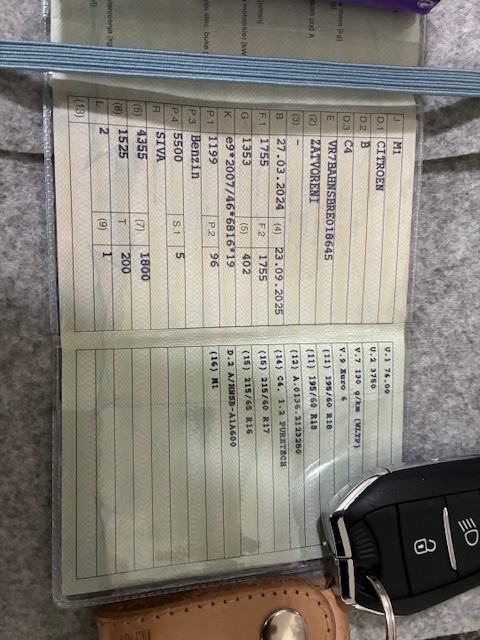 J M1
D.1 CITROEN
D.2 B
D.3 C4
E VR7BAHNSBRE018645
(2) ZATVORENI
(3) -
B 27.03.2024 (4) 23.09.2025
F.1 1755 F.2 1755
G 1353 (5) 402
K e9*2007/46*6816*19
P.1 1199 P.2 96
P.3 Benzin
P.4 5500 S.1 5
R SIVA
(6) 4355 (7) 1800
(8) 1525 T 200
L 2 (9) 1
(13)
U.1 74.00
U.2 3750
V.7 130 g/km (WLTP)
V.9 Euro 6
(11) 195/60 R18
(11) 195/60 R18
(12) A.0136.2123280
(14) C4. 1.2 PURETECH
(15) 215/60 R17
(15) 215/65 R16
D.2 A/HNSB-A1A600
(16) M1